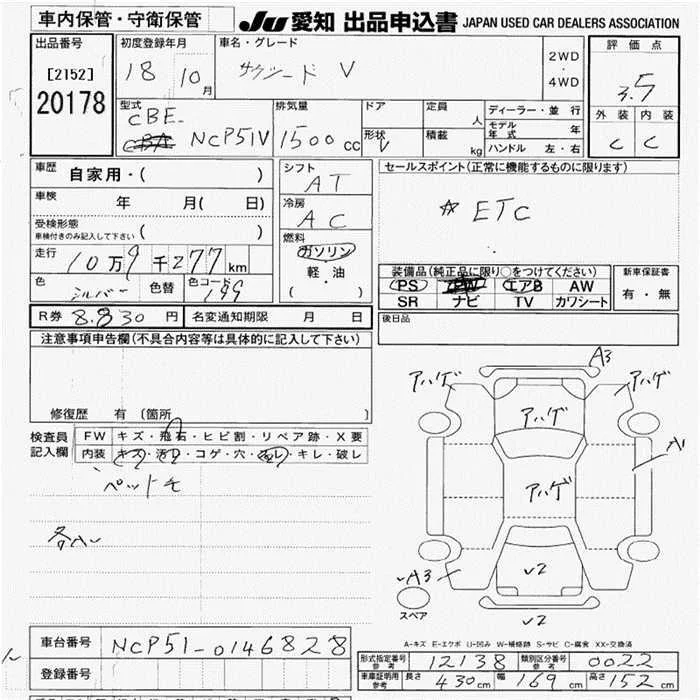 車内保管・守衛保管
JU 愛知 出品申込書 JAPAN USED CAR DEALERS ASSOCIATION
出品番号
[2152]
20178
初度登録年月
18 10月
車名・グレード
サクシード V
2WD
・
4WD
評価点
3.5
外装 内装
C C
型式
CBE-
NCP51V
排気量
1500 cc
ドア
定員
人
形状
V
積載
kg
ディーラー・並行
モデル年式 年
ハンドル 左・右
車歴
自家用・( )
車検
年 月( 日)
受検形態
車検付きのみ記入して下さい ( )
走行
10万9千277km
色
シルバー
色替
色コード
199
シフト
AT
冷房
AC
燃料
ガソリン
軽・油
( )
セールスポイント(正常に機能するものに限ります)
☆ ETC
装備品(純正品に限り○をつけてください)
PS PW エアB AW
SR ナビ TV カワシート
新車保証書
有・無
R券 8.830円 名変通知期限 月 日
後日品
注意事項申告欄(不具合内容等は具体的に記入して下さい)
修復歴 有 〔箇所 〕
検査員
記入欄
FW キズ・飛石・ヒビ割・リペア跡・X要
内装 キズ・汚レ・コゲ・穴・スレ・キレ・破レ
各A
A3
アハゲ アハゲ
アハゲ
A1
アハゲ
A3
v2
スペア
v2
A-キズ E-エクボ U-凹み W-補修跡 S-サビ C-腐食 XX-交換済
車台番号 NCP51-0146828
登録番号
形式指定番号 参考 12138 類別区分番号 参考 0022
車庫証明用 参考 長さ 430cm 幅 169cm 高さ 152cm